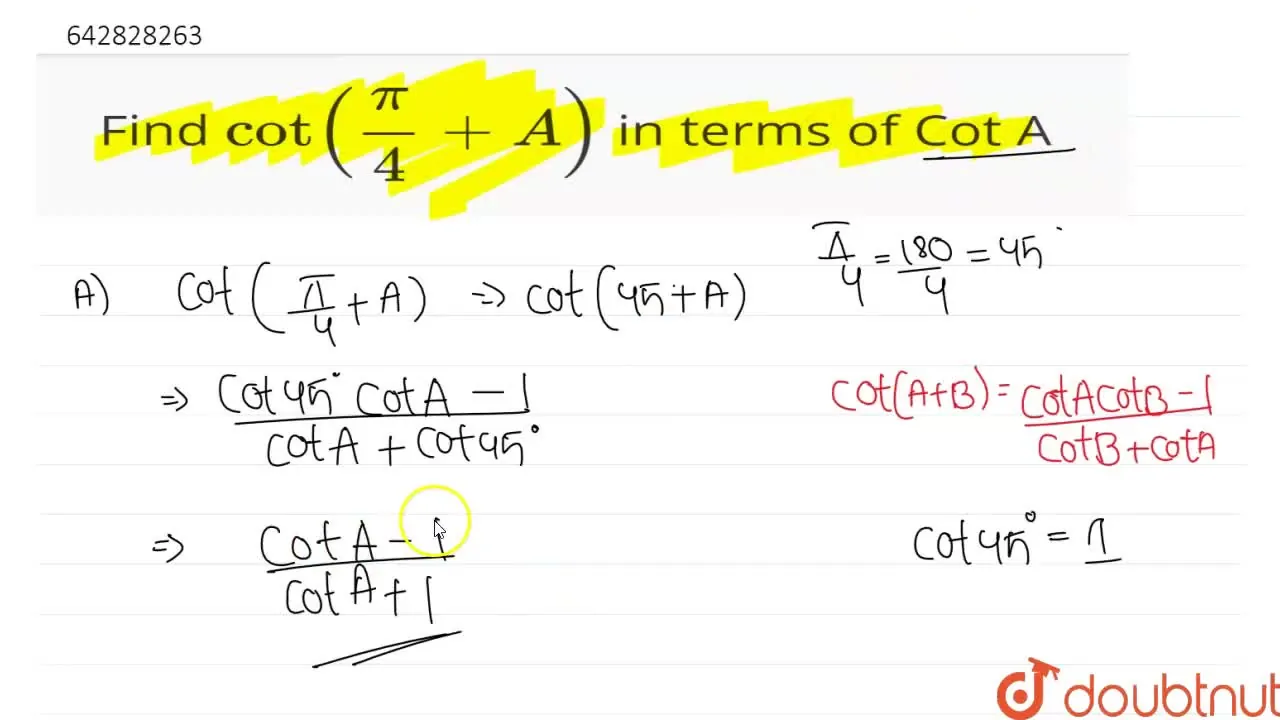 642828263
Find cot(π/4 + A) in terms of Cot A
π/4 = 180/4 = 45°
A) cot(π/4 + A) => cot(45+A)
=> (cot45° cotA - 1)/(cotA + cot45°)
cot(A+B) = (cotAcotB - 1)/(cotB + cotA)
=> (cotA - 1)/(cotA + 1)
cot45° = 1
doubtnut